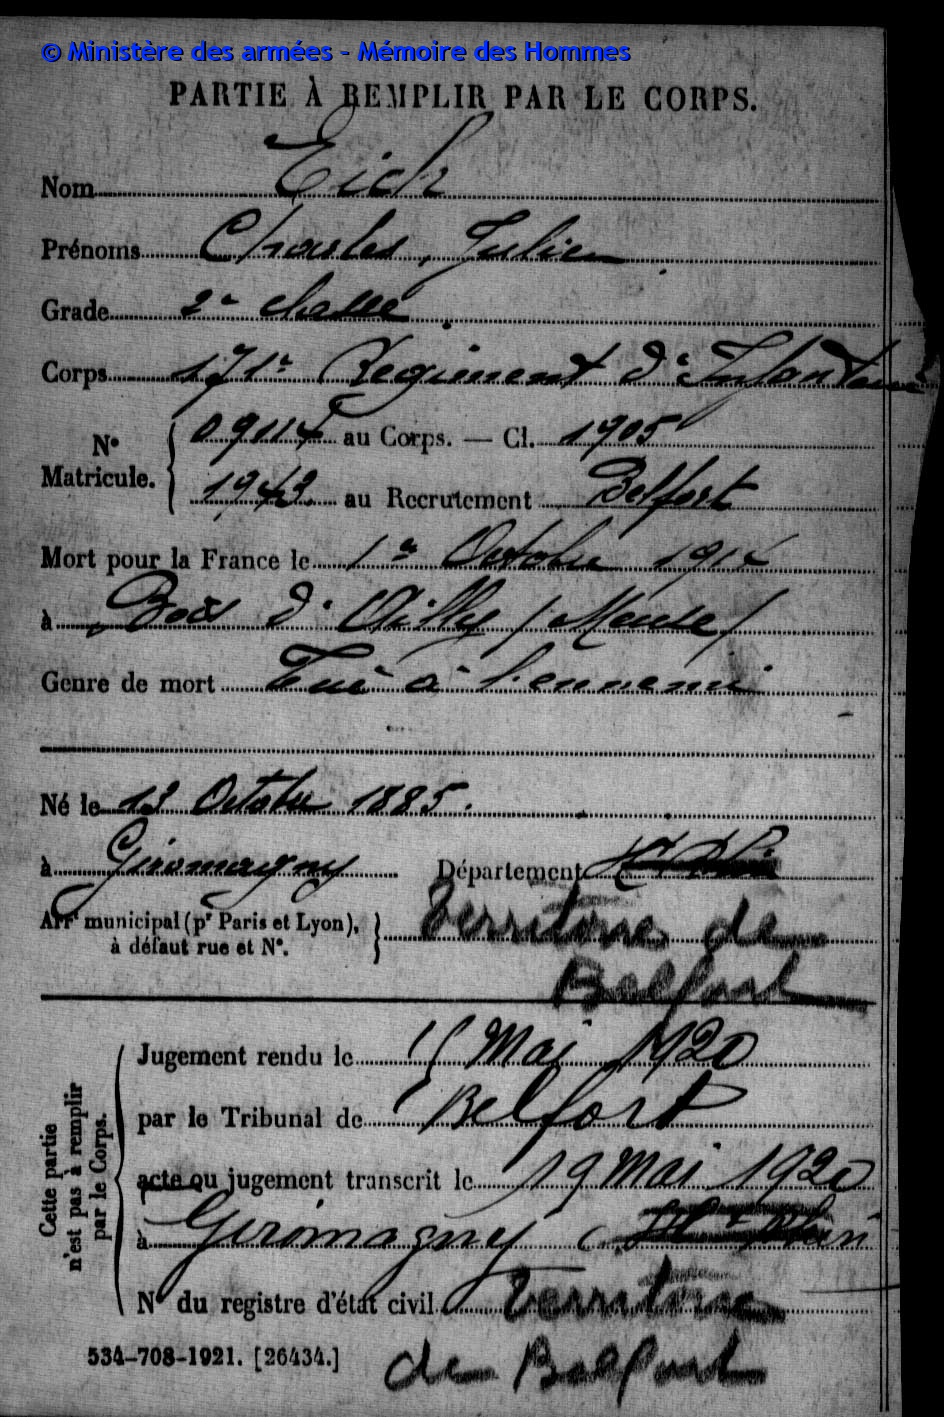 © Ministère des armées - Mémoire des Hommes
PARTIE À REMPLIR PAR LE CORPS.
Nom Eich
Prénoms Charles, Julien
Grade 2e classe
Corps 171e Régiment d'Infanterie
N° Matricule. 09114 au Corps. — Cl. 1905
1943 au Recrutement Belfort
Mort pour la France le 1er Octobre 1914
à Bois d'Ailly (Meuse)
Genre de mort Tué à l'ennemi
Né le 13 Octobre 1885.
à Giromagny Département
Arrt municipal (pr Paris et Lyon), à défaut rue et N°. Territoire de
Belfort
Cette partie n'est pas à remplir par le Corps.
Jugement rendu le 15 Mai 1920
par le Tribunal de Belfort
acte ou jugement transcrit le 19 Mai 1920
à Giromagny
N° du registre d'état civil Territoire
de Belfort
534-708-1921. [26434.]